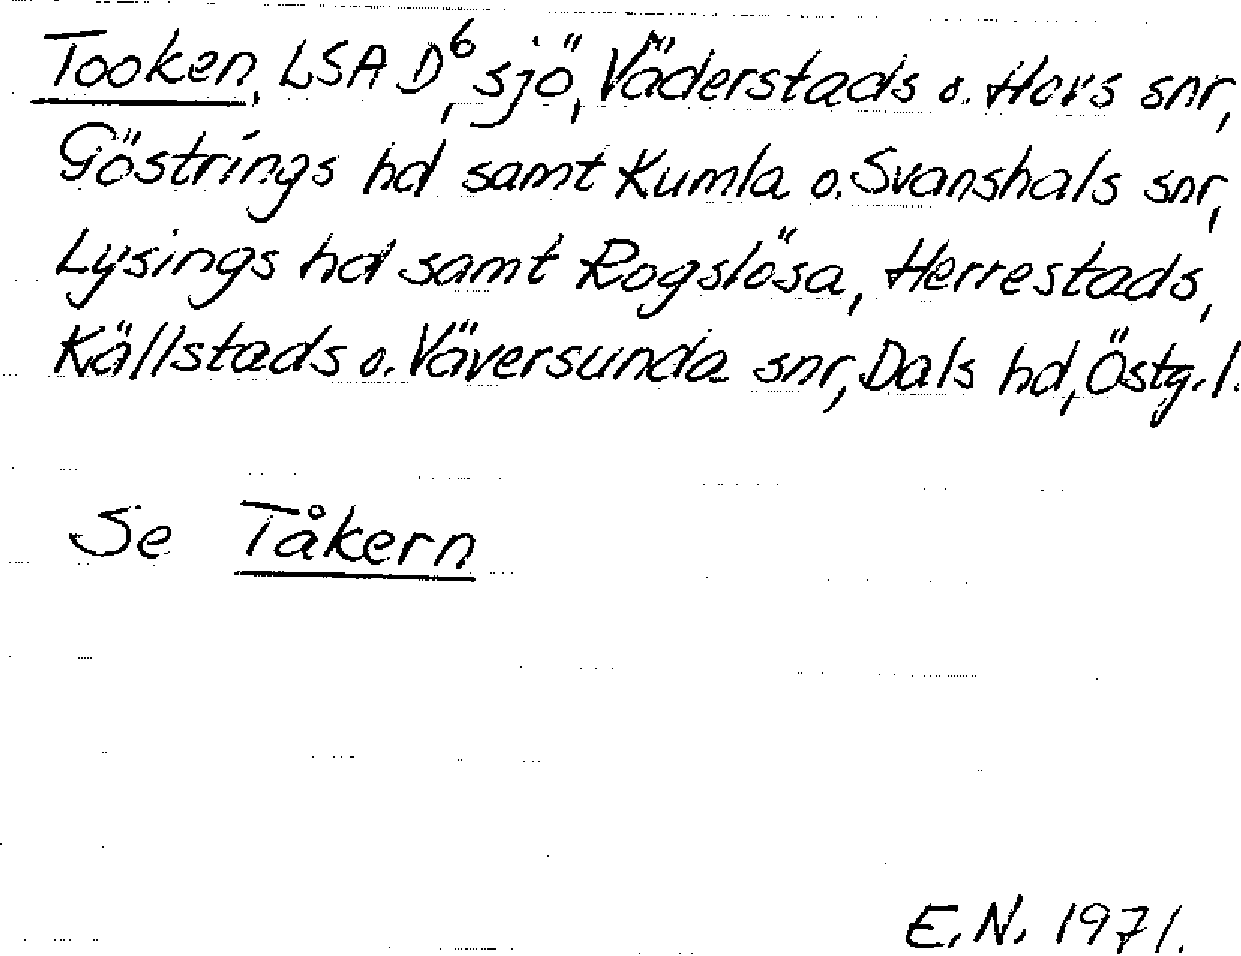 Tooken, LSA D⁶, sjö, Väderstads o. Hovs snr,
Göstrings hd samt Kumla o. Svanshals snr,
Lysings hd samt Rogslösa, Herrestads,
Källstads o. Väversunda snr, Dals hd, Östg.l.
Se Tåkern
E.N. 1971.